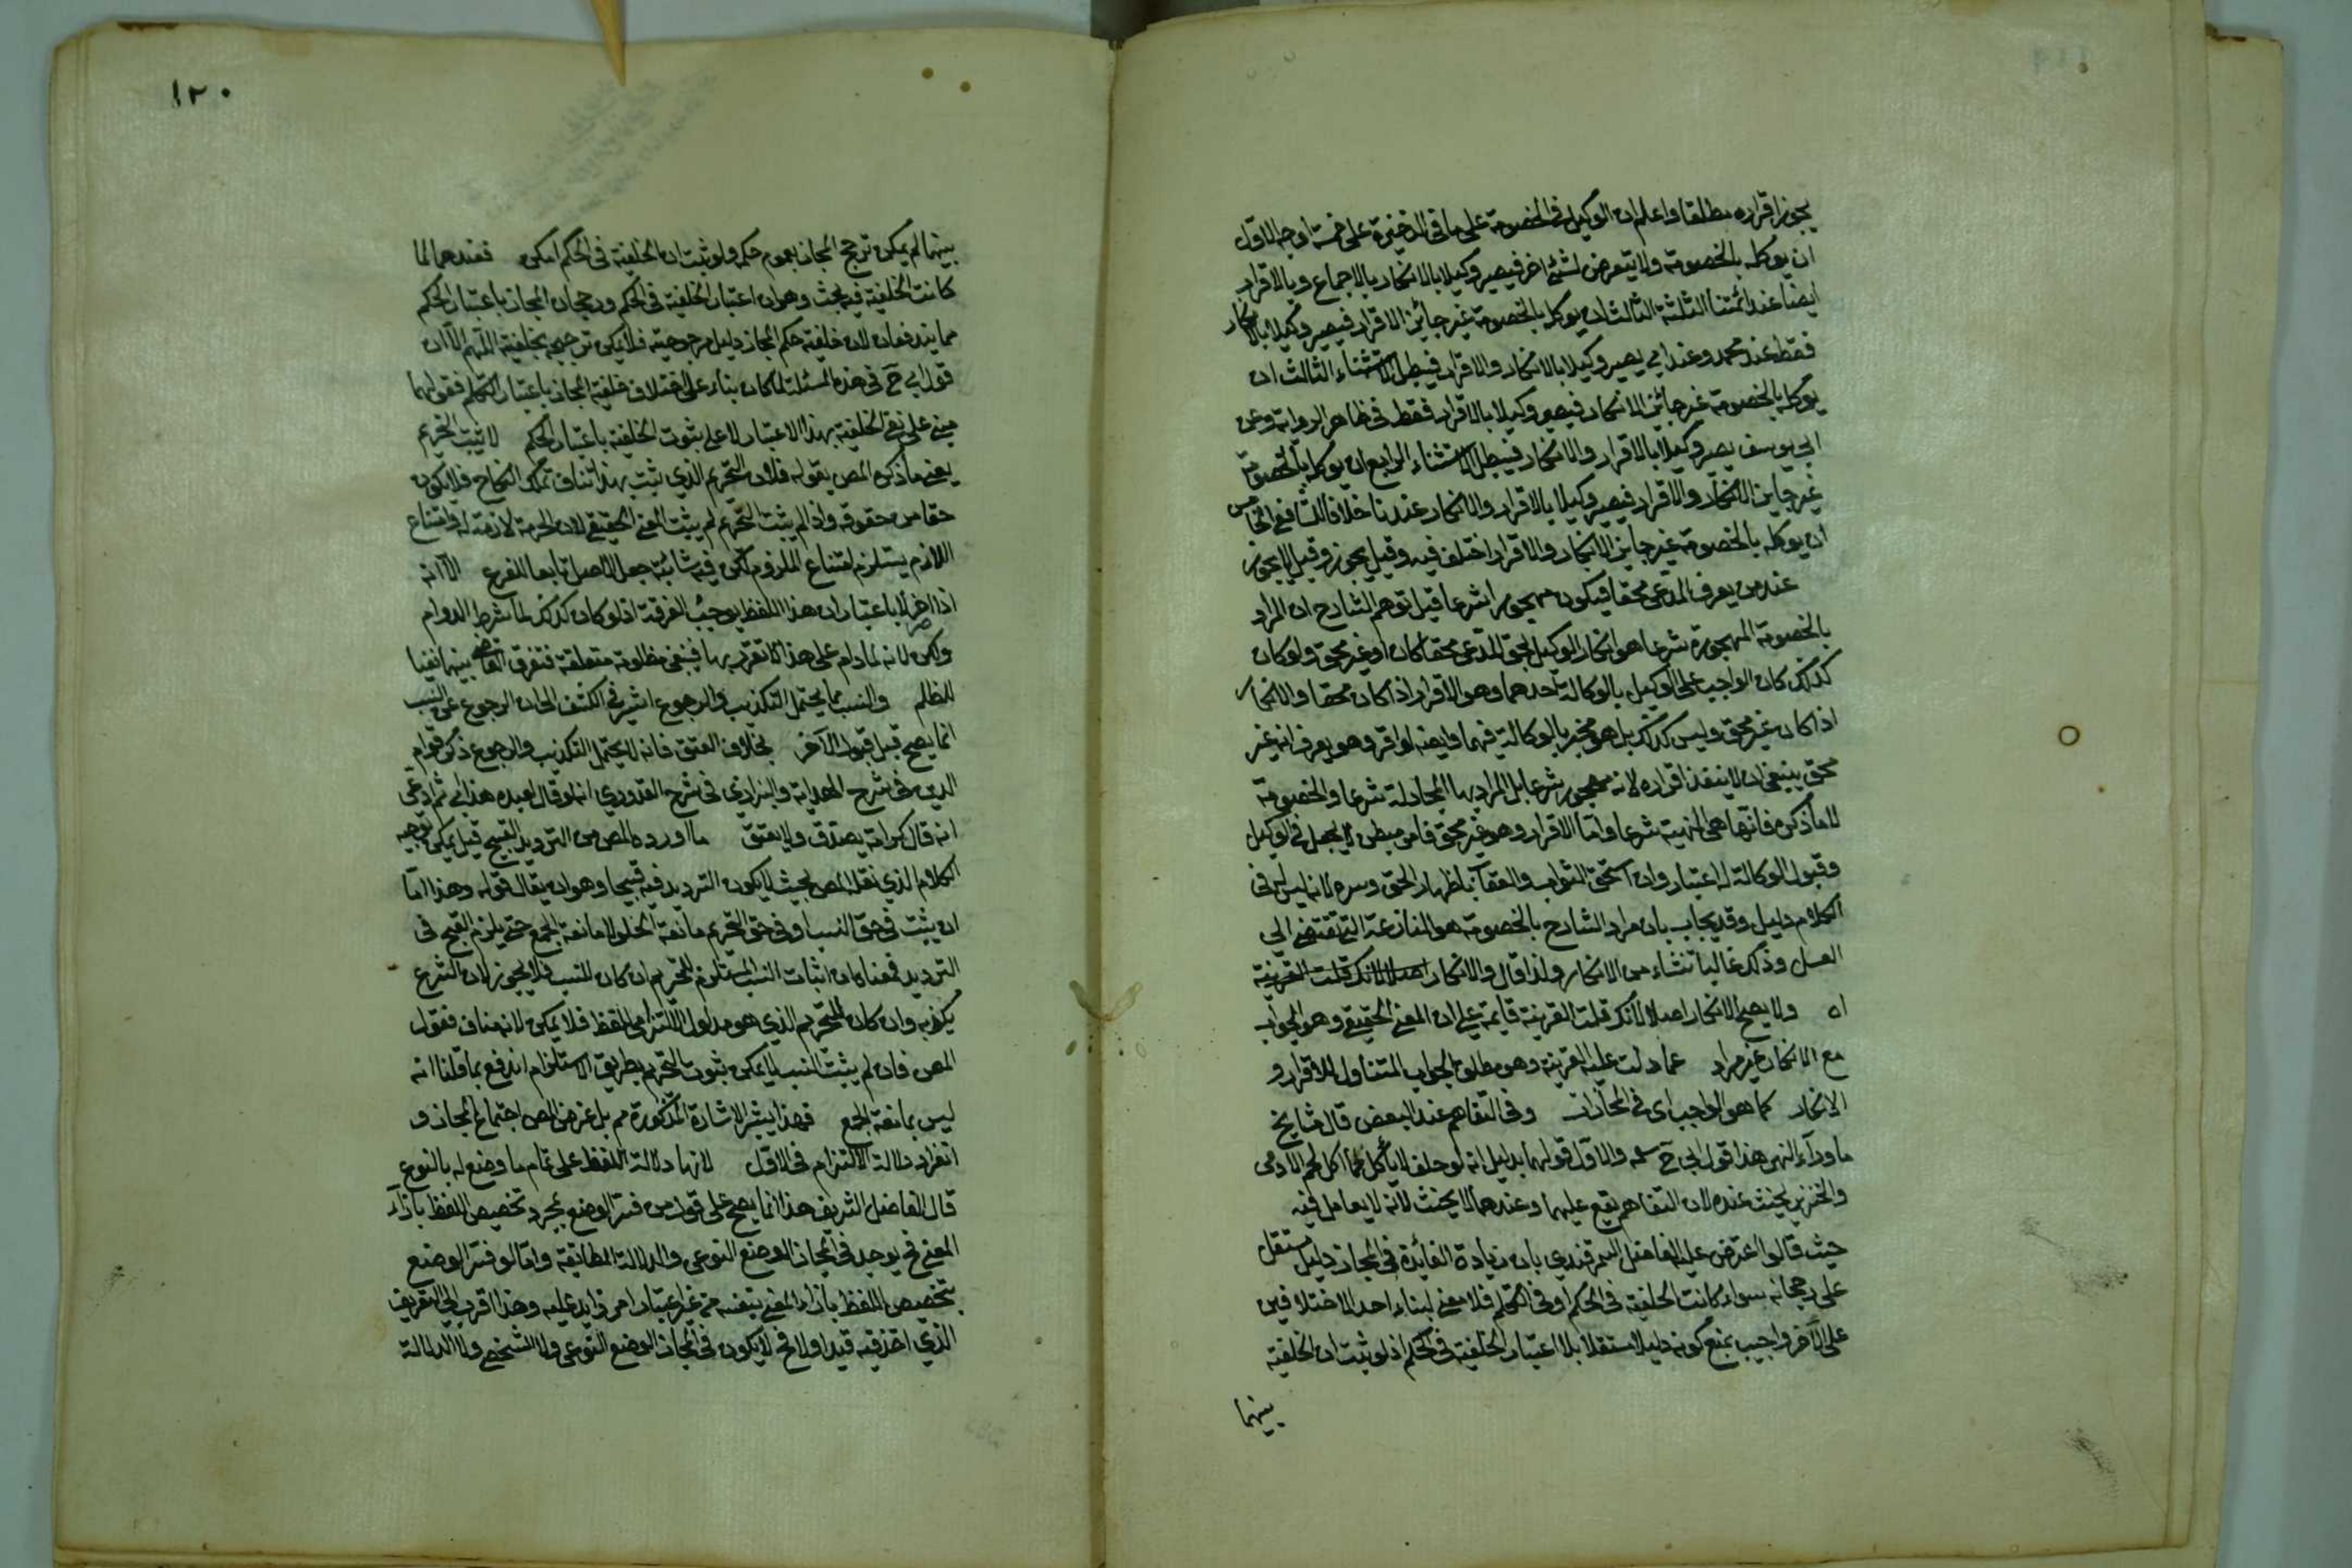 يجوز اقراره مطلقا واعلم ان الوكيل في الخصومة على ما في الذخيرة على خمسة اوجه الاول
ان يوكله بالخصومة ولا يتعرض لشئ اخر فيصير وكيلا بالانكار بالاجماع وبالاقرار
ايضا عند ائمتنا الثلثة الثالث ان يوكل بالخصومة غير جائز الاقرار فيصير وكيلا بالانكار
فقط عند محمد وعند ابي يصير وكيلا بالانكار والاقرار فيبطل الاستثناء الثالث ان
يوكله بالخصومة غير جائز الانكار فيصير وكيلا بالاقرار فقط في ظاهر الرواية وعن
ابي يوسف يصير وكيلا بالاقرار والانكار فيبطل الاستثناء الرابع ان يوكله بالخصومة
غير جايز الانكار والاقرار فيصير وكيلا بالاقرار والانكار عندنا خلافا للشافعي الخامس
ان يوكله بالخصومة غير جايز الانكار والاقرار اختلف فيه وقيل يجوز وقيل لا يجوز
عند من يعرف المدعي محقا فيكون مهجورا شرعا قيل توهم الشارح ان المراد
بالخصومة المهجورة شرعا هو انكار الوكيل لحق المدعي محقا كان او غير محق ولو كان
كذلك كان الواجب على الوكيل بالوكالة احدهما وهو الاقرار اذا كان محقا والانكار
اذا كان غير محق وليس كذلك بل هو مخير بالوكالة فيهما وايضا لو اقر وهو يعرف انه غير
محق ينبغي ان لا ينفذ اقراره لانه مهجور شرعا بل المراد بها المجادلة شرعا والخصومة
لما ذكره فانها هي المنهية شرعا واما الاقرار وهو غير محق فامر مبطن لا يجعل في الوكيل
وقبول الوكالة له اعتبار وان استحق الثواب والعقاب باظهار الحق وسره لانه ليس في
الكلام دليل وقد يجاب بان مراد الشارح بالخصومة هو المنازعة التي تفتضي الى
الفسل وذلك غالبا تنشاء من الانكار ولذا قال والانكار اصلا لا لانك قلت القرينة
اه ولا يصح الانكار اصلا لانك قلت القرينة قايمة على ان المعنى الحقيقي وهو الجواب
مع الانكار غير مراد عما دلت عليه القرينة وهو مطلق الجواب المتناول للاقرار و
الانكار كما هو الواجب اي في المجازات وفي التفاهم عند البعض قال مشايخ
ما وراء النهر هذا قول ابي ح والاول قولهما بدليل انه لو حلف لا يأكل لحما اكل لحم الآدمي
والخنزير يحنث عنده لان التفاهم يقع عليهما وعندهما لا يحنث لانه لا يعامل فيه
حيث قالوا اعترض عليه الفاضل السمرقندي بان زيادة الفائدة في المجاز دليل مستقل
على رجحانه سواء كانت الخلفية في الحكم او في التكلم فلا معنى لبناء احد الاختلافين
على الآخر واجيب بمنع كونه دليلا مستقلا بلا اعتبار الخلفية في الحكم اذ لو ثبت ان الخلفية
بينهما
١٢٠
بينهما لم يمكن ترجح المجاز بعموم حكمه ولو ثبت ان الخلفية في الحكم امكن فعندهما لما
كانت الخلفية فيه بحث وهو ان اعتبار الخلفية في الحكم ورجحان المجاز باعتبار الحكم
مما يتدفعان لان خلفية حكم المجاز دليل مرجوحيته فلا يمكن ترجيحه بخلفيته اللهم الا ان
قول ابي ح في هذه المسئلة لما كان بناء على اختلاف خلفية المجاز باعتبار التكلم فقولهما
مبني على نفي الخلفية بهذا الاعتبار لا على ثبوت الخلفية باعتبار الحكم لا يثبت التحريم
يعني ما ذكره المص بقوله فلان التحريم الذي يثبت بهذا تناف تملك النكاح فلا يكون
حقا من حقوقه واذا لم يثبت التحريم لم يثبت المعنى الحقيقي لان الحرمة لازمة له وامتناع
اللازم يستلزم امتناع الملزوم لكن فيه شائبة جعل الاصل تابعا للفرع الا انه
اذا اصر لا باعتبار ان هذا اللفظ يوجب الفرقة اذ لو كان كذلك لما شرط الدوام
ولكن لانه لما دام على هذا لا تقر بها فبقي مظلومة متعلقة فتفرق القاضي بينهما نفيا
للظلم والنسب مما يحتمل التكذيب والرجوع اشير في الكشف الى ان الرجوع عن النسب
انما يصح قبل قبول الآخر بخلاف العتق فانه لا يحتمل التكذيب والرجوع ذكر قوام
الدين في شرح الهداية والبزازي في شرح القدوري انه لو قال لعبده هذا ابي ثم ادعى
انه قال كرامة يصدق ولا يعتق ما اورده المص من الترديد القبيح قيل يمكن توجيه
الكلام الذي نقله المص بحيث لا يكون الترديد فيه قبيحا وهو ان يقال قوله وهذا اما
ان يثبت في حق النسب او في حق التحريم مانعة الخلو لا مانعة الجمع حتى يلزم القبح في
الترديد فمعناه ان اثبات النسب المستلزم للتحريم ان كان للنسب فلا يجوز لان الشرع
يكذبه وان كان للتحريم الذي هو مدلول الالتزامي للفظ فلا يمكن لانه مناف فقول
المص فان لم يثبت النسب لا يمكن ثبوت التحريم بطريق الاستلزام اندفع بما قلنا انه
ليس بمانعة الجمع فهذا يشير الاشارة المذكورة مم بل غرض المص اجتماع المجاز و
انفراد دلالة الالتزام في الاول لانها دلالة اللفظ على تمام ما وضع له بالنوع
قال الفاضل الشريف هذا انما يصح على قول من فسر الوضع بمجرد تخصيص اللفظ بازاء
المعنى فح يوجد في المجاز الوضع النوعي والدلالة المطابقة واما لو فسر الوضع
بتخصيص اللفظ بازاء المعنى بنفسه من غير اعتبار امر زايد عليه وهذا اقرب الى التعريف
الذي اخذ فيه قيد اولا فح لا يكون في المجاز الوضع النوعي ولا الشخصي ولا الدلالة